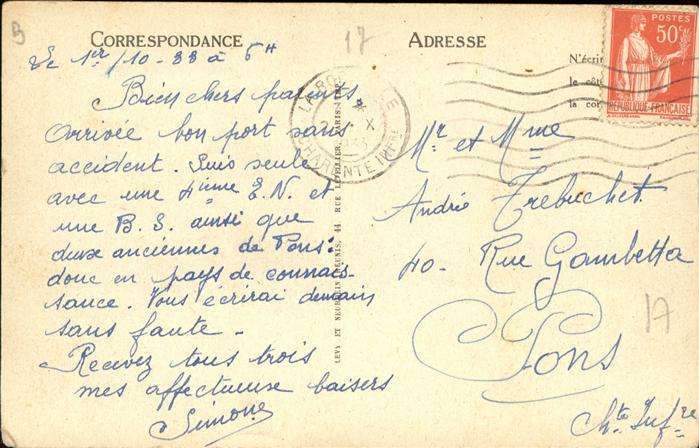 B
17
CORRESPONDANCE
Le 1er/10-33 à 6H
Bien chers parents
Arrivée bon port sans
accident. Suis seule
avec une 4ième E.N. et
une B.S. ainsi que
deux anciennes de Pons:
donc en pays de connais-
sance. Vous écrirai demain
sans faute -
Recevez tous trois
mes affectueux baisers
Simone
LEVY ET NEURDEIN RÉUNIS, 44 RUE LETELLIER, PARIS
ADRESSE
N'écrir
le côt
la cor
POSTES
50c
REPUBLIQUE FRANÇAISE
LA RO
CHARENTE INFRE
Mr et Mme
André Trebuchet
40 - Rue Gambetta
Pons
Chte Infre
17